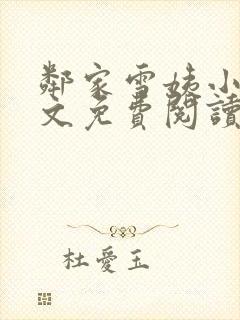 鄰家雪姨小
文免費閱讀
杜愛玉